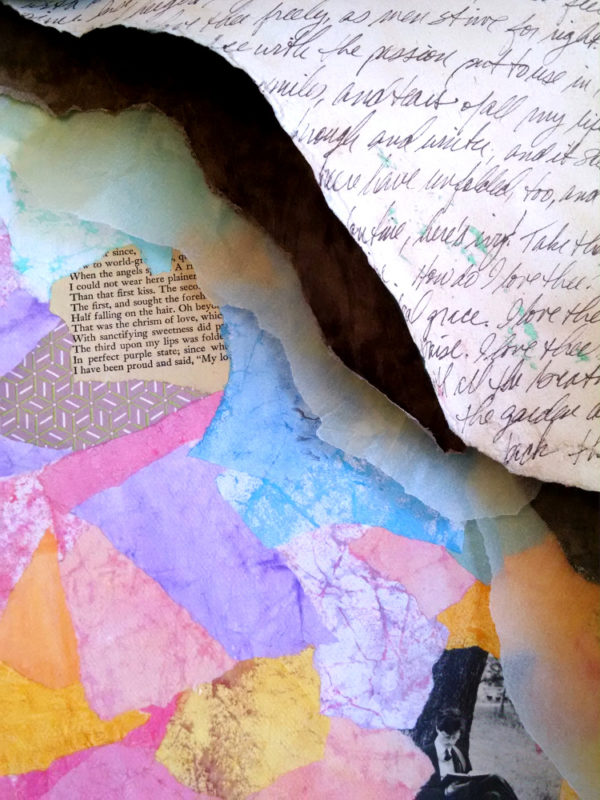 thee freely, as men strive for right
with the passion put to use in
smiles, and tears of all my life
through and write, and it
have unfolded, too, and
here's ivy! Take
How do I love thee.
grace. I love thee
I love thee
all the breath
the garden
back
since,
to world-
When the angels
I could not wear here plainer
Than that first kiss. The secon
The first, and sought the foreh
Half falling on the hair. Oh beyo
That was the chrism of love, whic
With sanctifying sweetness did p
The third upon my lips was folde
In perfect purple state; since whe
I have been proud and said, "My lo